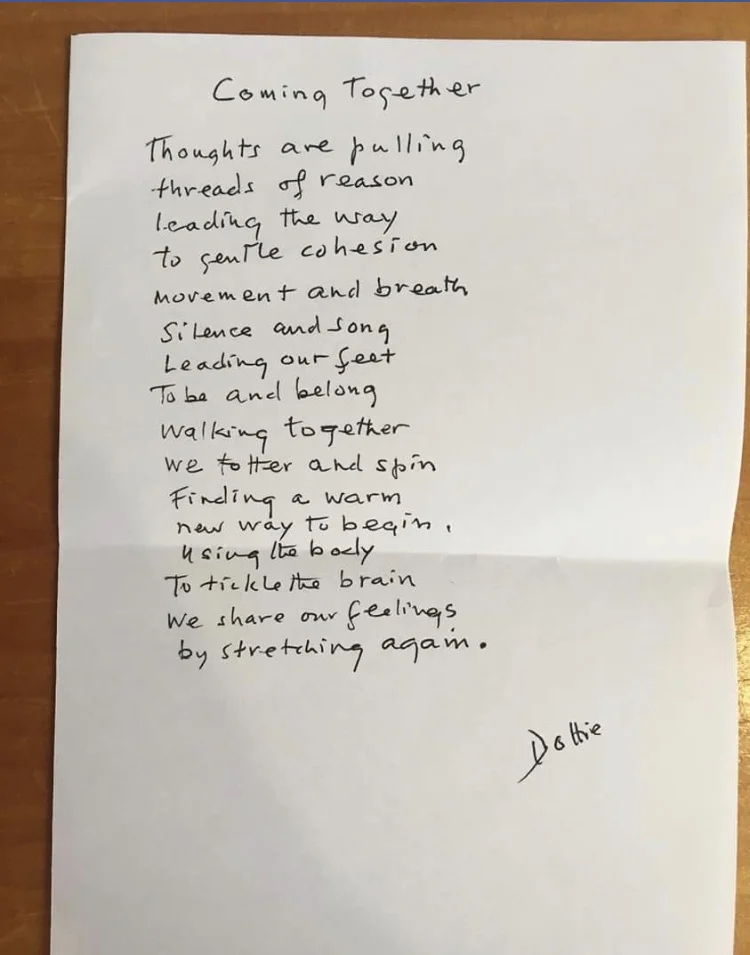 Coming Together
Thoughts are pulling
threads of reason
leading the way
to gentle cohesion
movement and breath
Silence and song
Leading our feet
To be and belong
walking together
we totter and spin
Finding a warm
new way to begin.
Using the body
To tickle the brain
We share our feelings
by stretching again.
Dottie